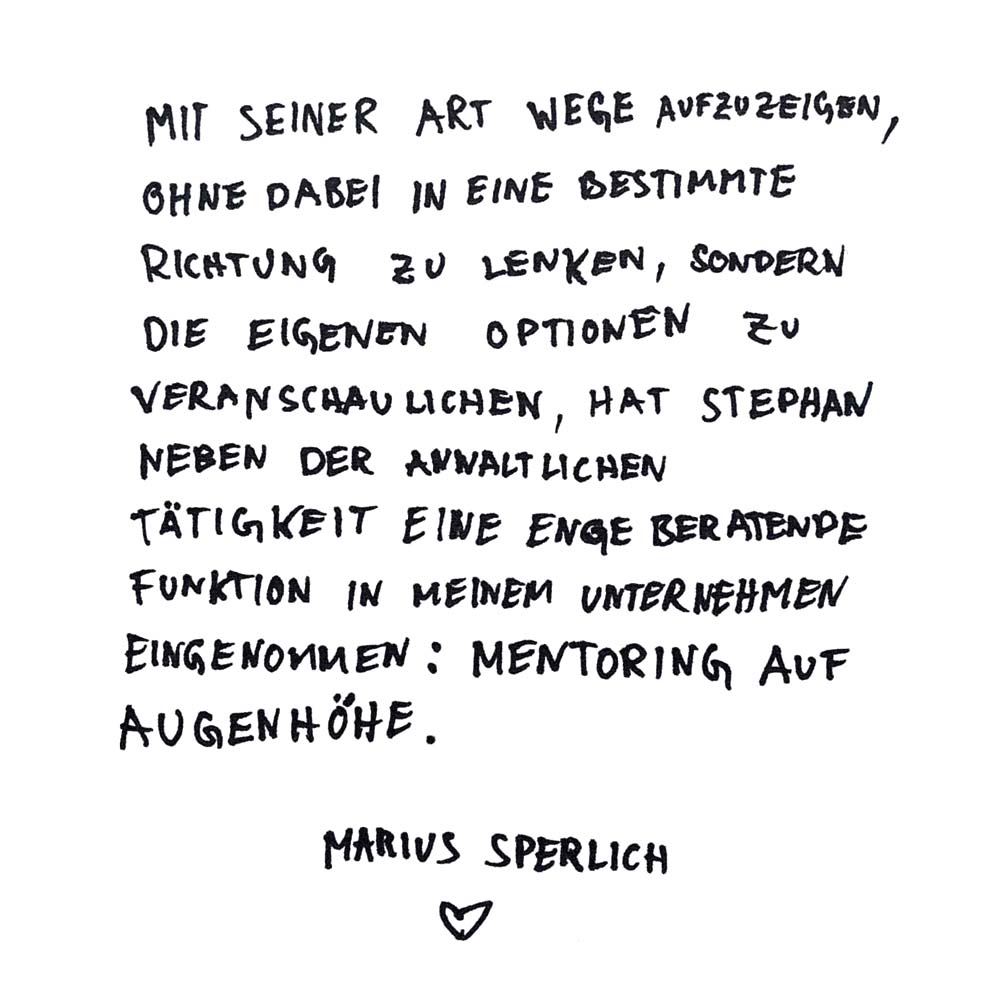 MIT SEINER ART WEGE AUFZUZEIGEN,
OHNE DABEI IN EINE BESTIMMTE
RICHTUNG ZU LENKEN, SONDERN
DIE EIGENEN OPTIONEN ZU
VERANSCHAULICHEN, HAT STEPHAN
NEBEN DER ANWALTLICHEN
TÄTIGKEIT EINE ENGE BERATENDE
FUNKTION IN MEINEM UNTERNEHMEN
EINGENOMMEN: MENTORING AUF
AUGENHÖHE.
MARIUS SPERLICH